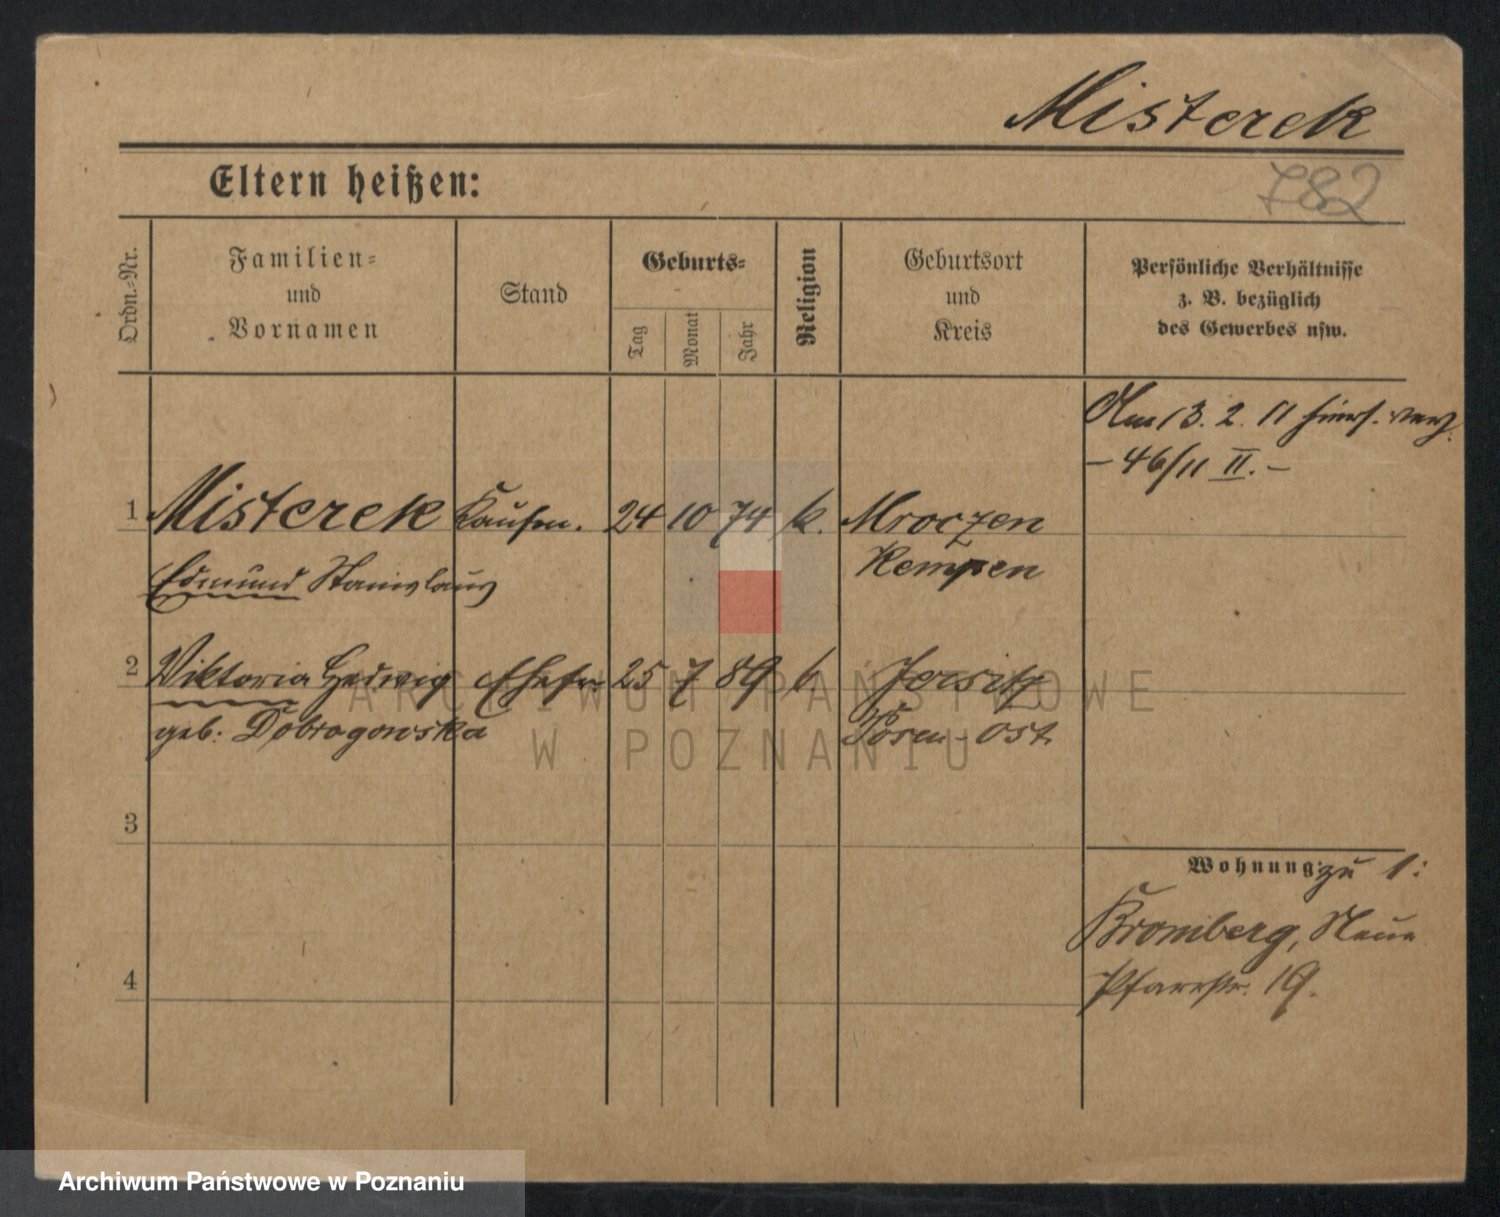 Misterek
Eltern heißen:
782
Ordn.-Nr.
Familien-
und
Vornamen
Stand
Geburts-
Tag
Monat
Jahr
Religion
Geburtsort
und
Kreis
Persönliche Verhältnisse
z. B. bezüglich
des Gewerbes usw.
Am 13. 2. 11 hiers. verh.
- 46/11 II. -
1 Misterek Kaufm. 24 10 74 k. Mroczen
Edmund Stanislaus Kempen
2 Viktoria Hedwig Ehefr. 25 7 89 k. Jersitz
geb. Dobrogowska Posen-Ost
3
Wohnung: zu 1:
Bromberg, Neue
4
Pfarrstr. 19.
ARCHIWUM PAŃSTWOWE
W POZNANIU
Archiwum Państwowe w Poznaniu